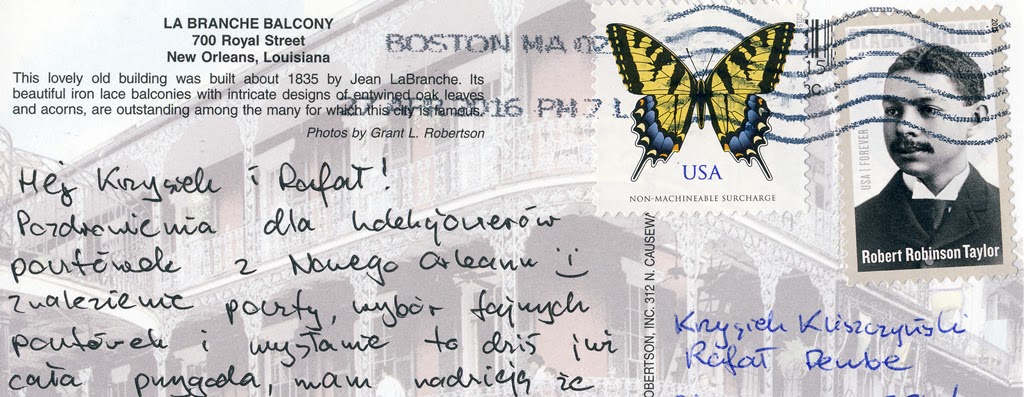 LA BRANCHE BALCONY
700 Royal Street
New Orleans, Louisiana
This lovely old building was built about 1835 by Jean LaBranche. Its
beautiful iron lace balconies with intricate designs of entwined oak leaves
and acorns, are outstanding among the many for which this city is famous.
Photos by Grant L. Robertson
Hej Krzysiek i Rafał!
Pozdrowienia dla kolekcjonerów
pocztówek z Nowego Orleanu :)
znalezienie poczty, wybór fajnych
pocztówek i wysłanie to dziś już
cała przygoda, mam nadzieję że
BOSTON MA
2016 PM 7 L
USA
NON-MACHINEABLE SURCHARGE
USA | FOREVER
BLACK HERITAGE
Robert Robinson Taylor
OBERTSON, INC. 312 N. CAUSEW
Krzysiek Kliszczyński
Rafał Dembe